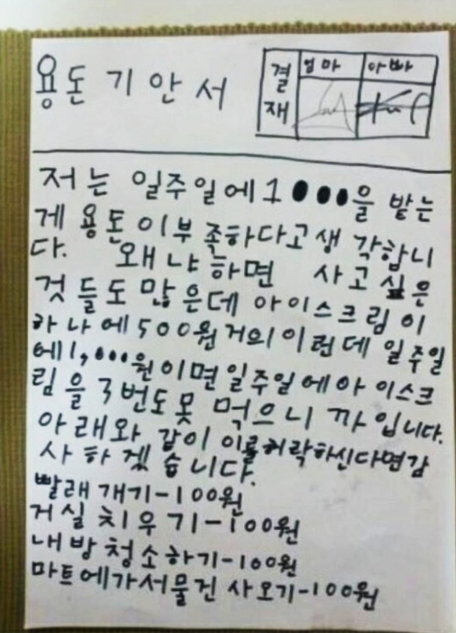 용돈 기안서
결재 엄마 아빠
저는 일주일에 1●●●을 받는
게 용돈이 부족하다고 생각합니
다. 왜냐하면 사고 싶은
것들도 많은데 아이스크림이
하나에 500원 거의 이런데 일주일
에 1,●●●원이면 일주일에 아이스크
림을 3번도 못 먹으니까입니다.
아래와 같이 이를 허락하신다면 감
사하겠습니다.
빨래 개기-100원
거실 치우기-100원
내방 청소하기-100원
마트에가서물건 사오기-100원